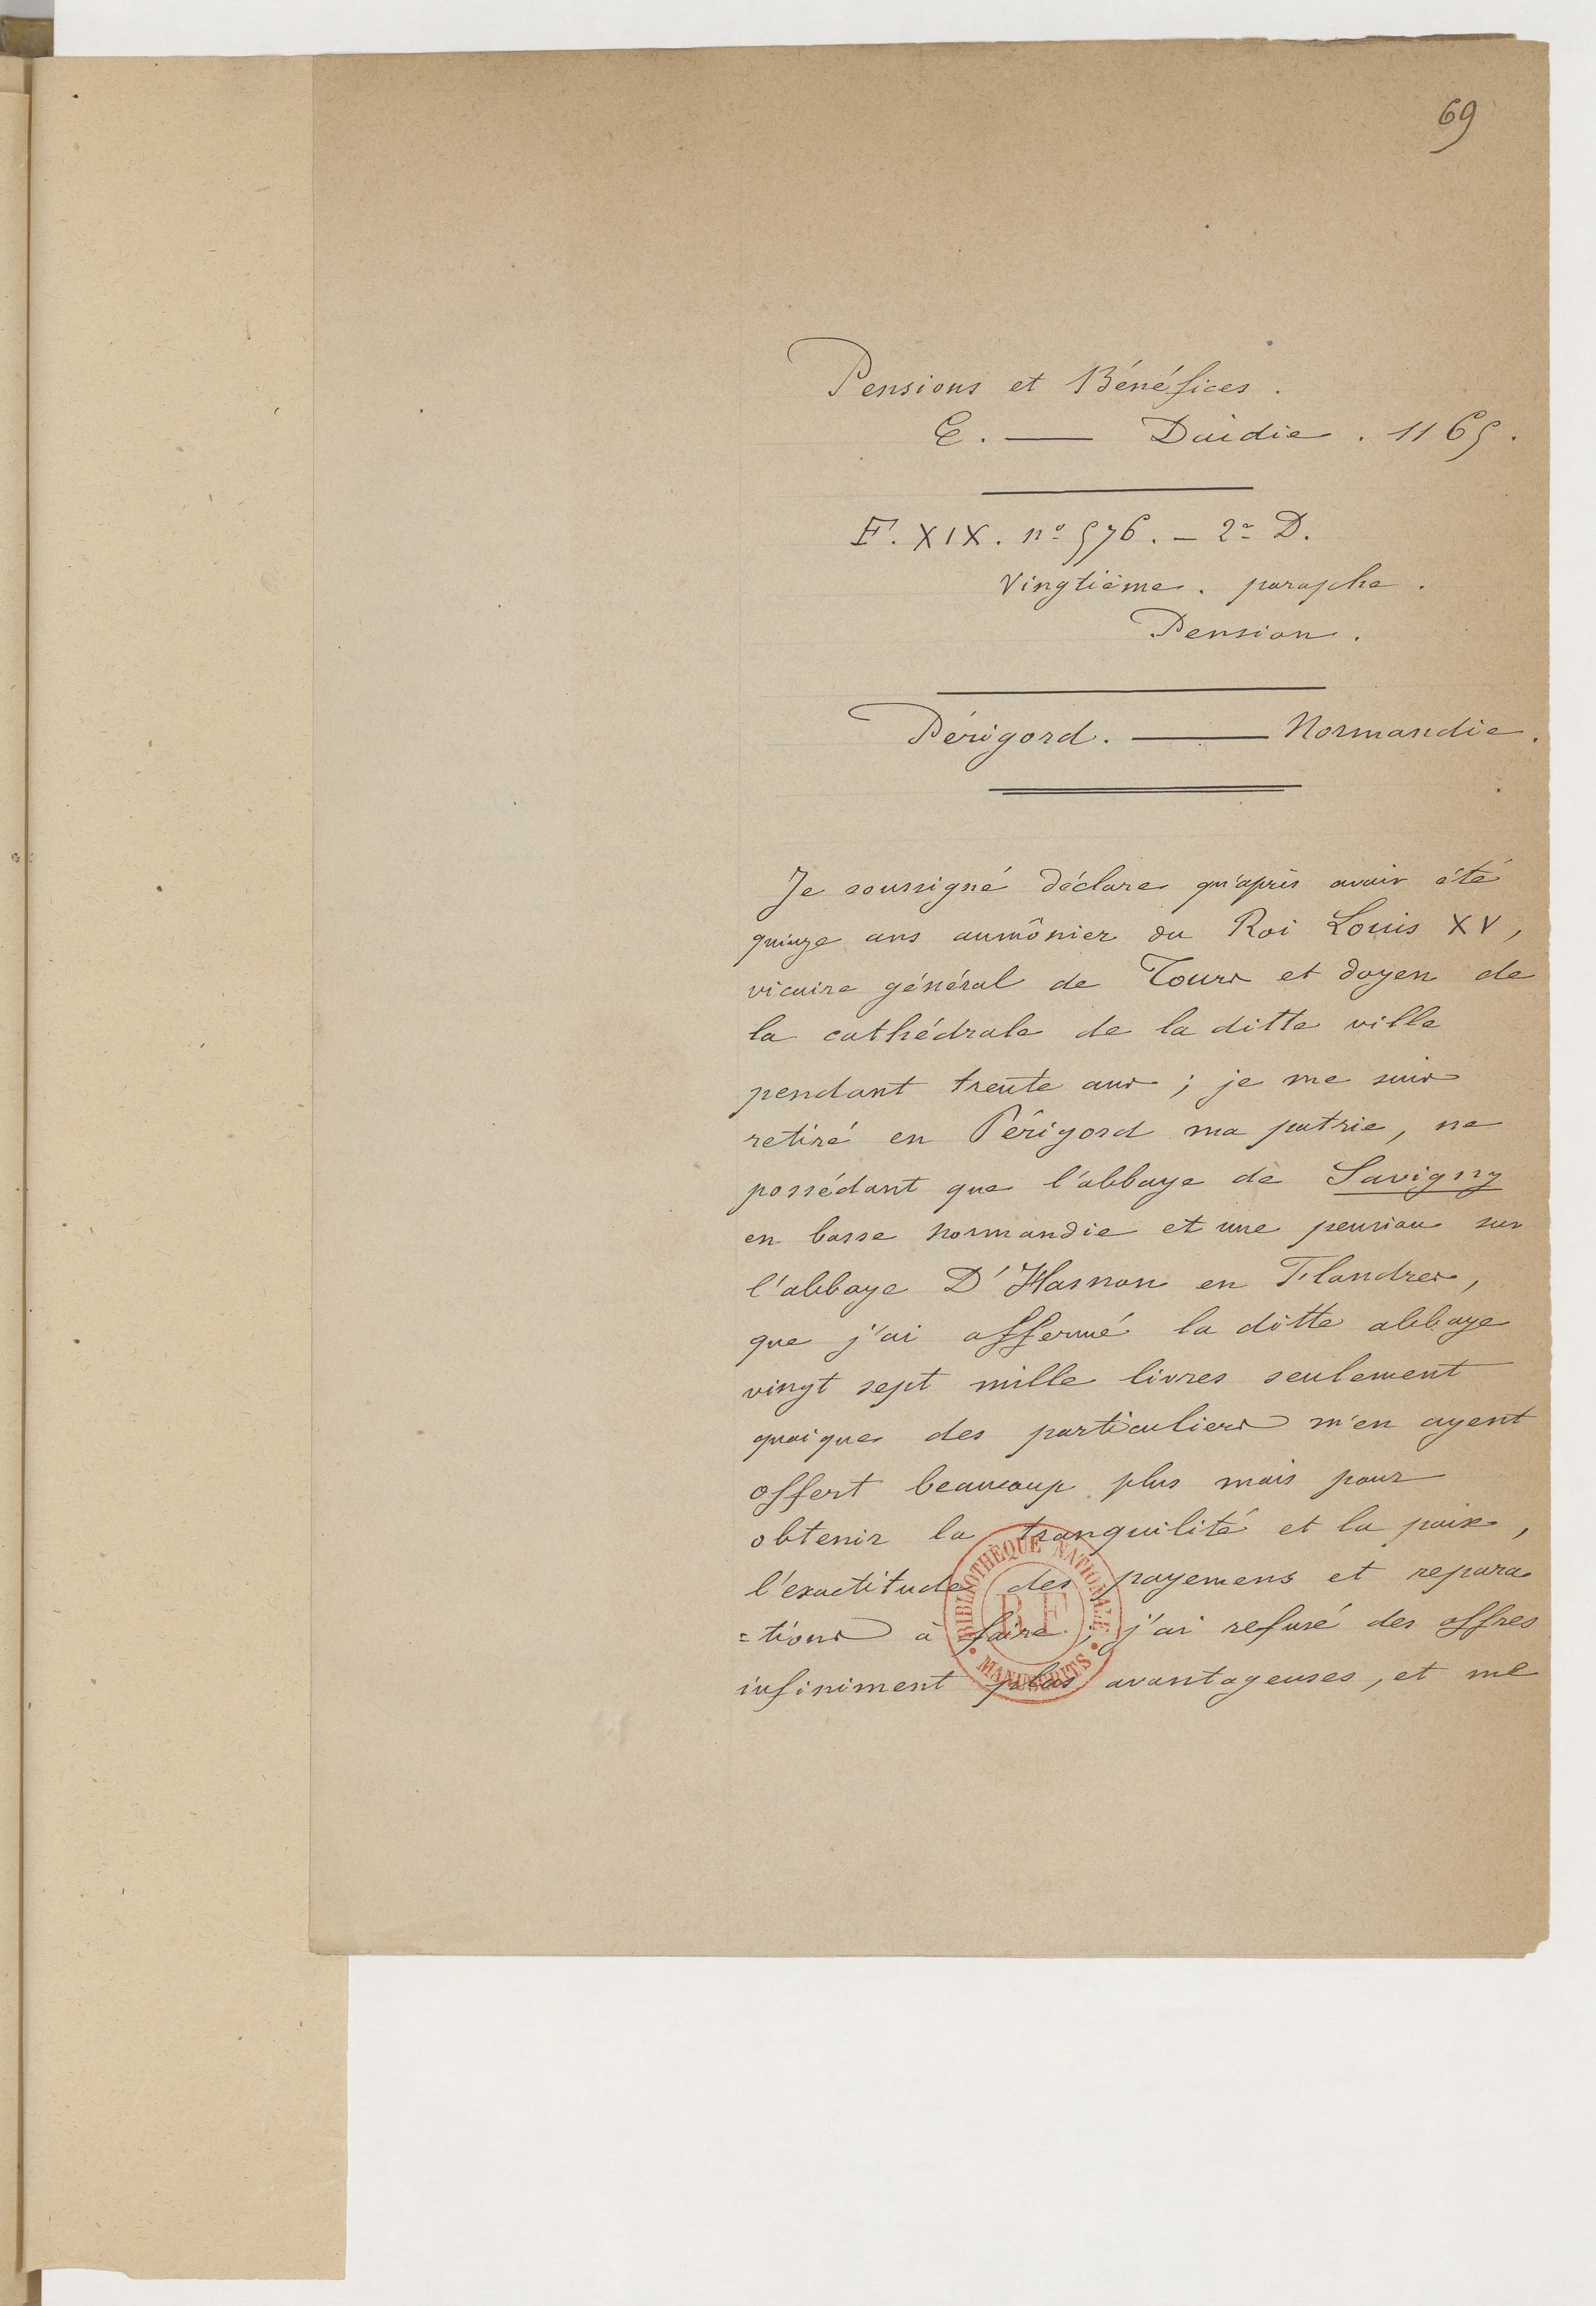 69
Pensions et Bénéfices.
E. — Daidie. 1165.
F. XIX. nº 576. — 2e D.
Vingtième. paraphe.
Pension.
Périgord. — Normandie.
Je soussigné déclare qu'après avoir été
quinze ans aumônier du Roi Louis XV,
vicaire général de Tours et doyen de
la cathédrale de la ditte ville
pendant trente ans ; je me suis
retiré en Périgord ma patrie, ne
possédant que l'abbaye de Savigny
en basse normandie et une pension sur
l'abbaye D'Hasnon en Flandres,
que j'ai affermé la ditte abbaye
vingt sept mille livres seulement
quoique des particuliers m'en ayent
offert beaucoup plus mais pour
obtenir la tranquilité et la paix,
l'exactitude des payemens et repara
=tions à faire ; j'ai refusé des offres
infiniment plus avantageuses, et me
BIBLIOTHÈQUE NATIONALE
R.F.
MANUSCRITS